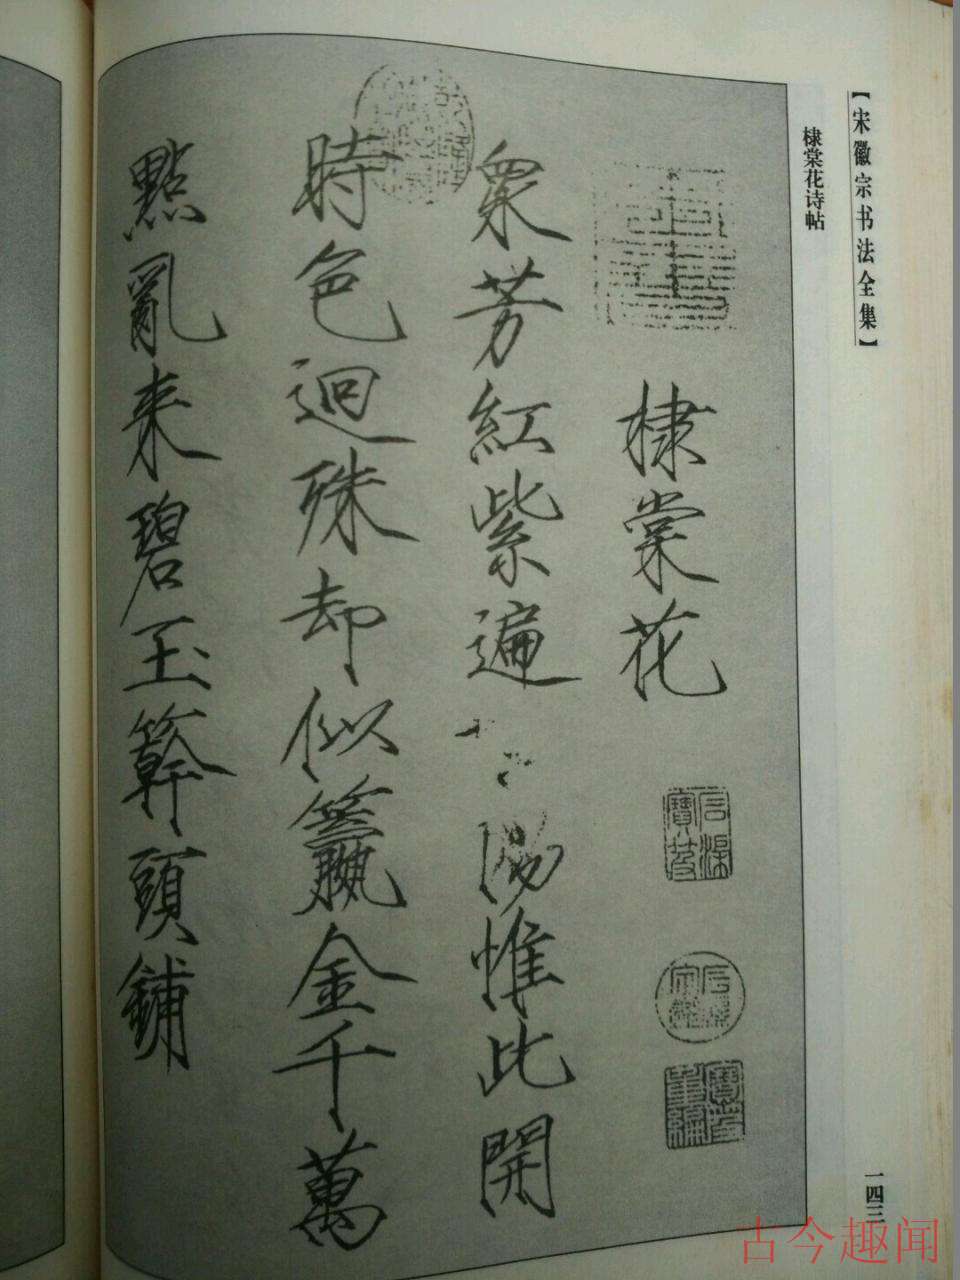 【宋徽宗书法全集】
棣棠花诗帖
棣棠花
眾芳紅紫遍
湯惟此開
時色迥殊却似籝金千萬
點亂来碧玉簳頭鋪
一四三
古今趣闻